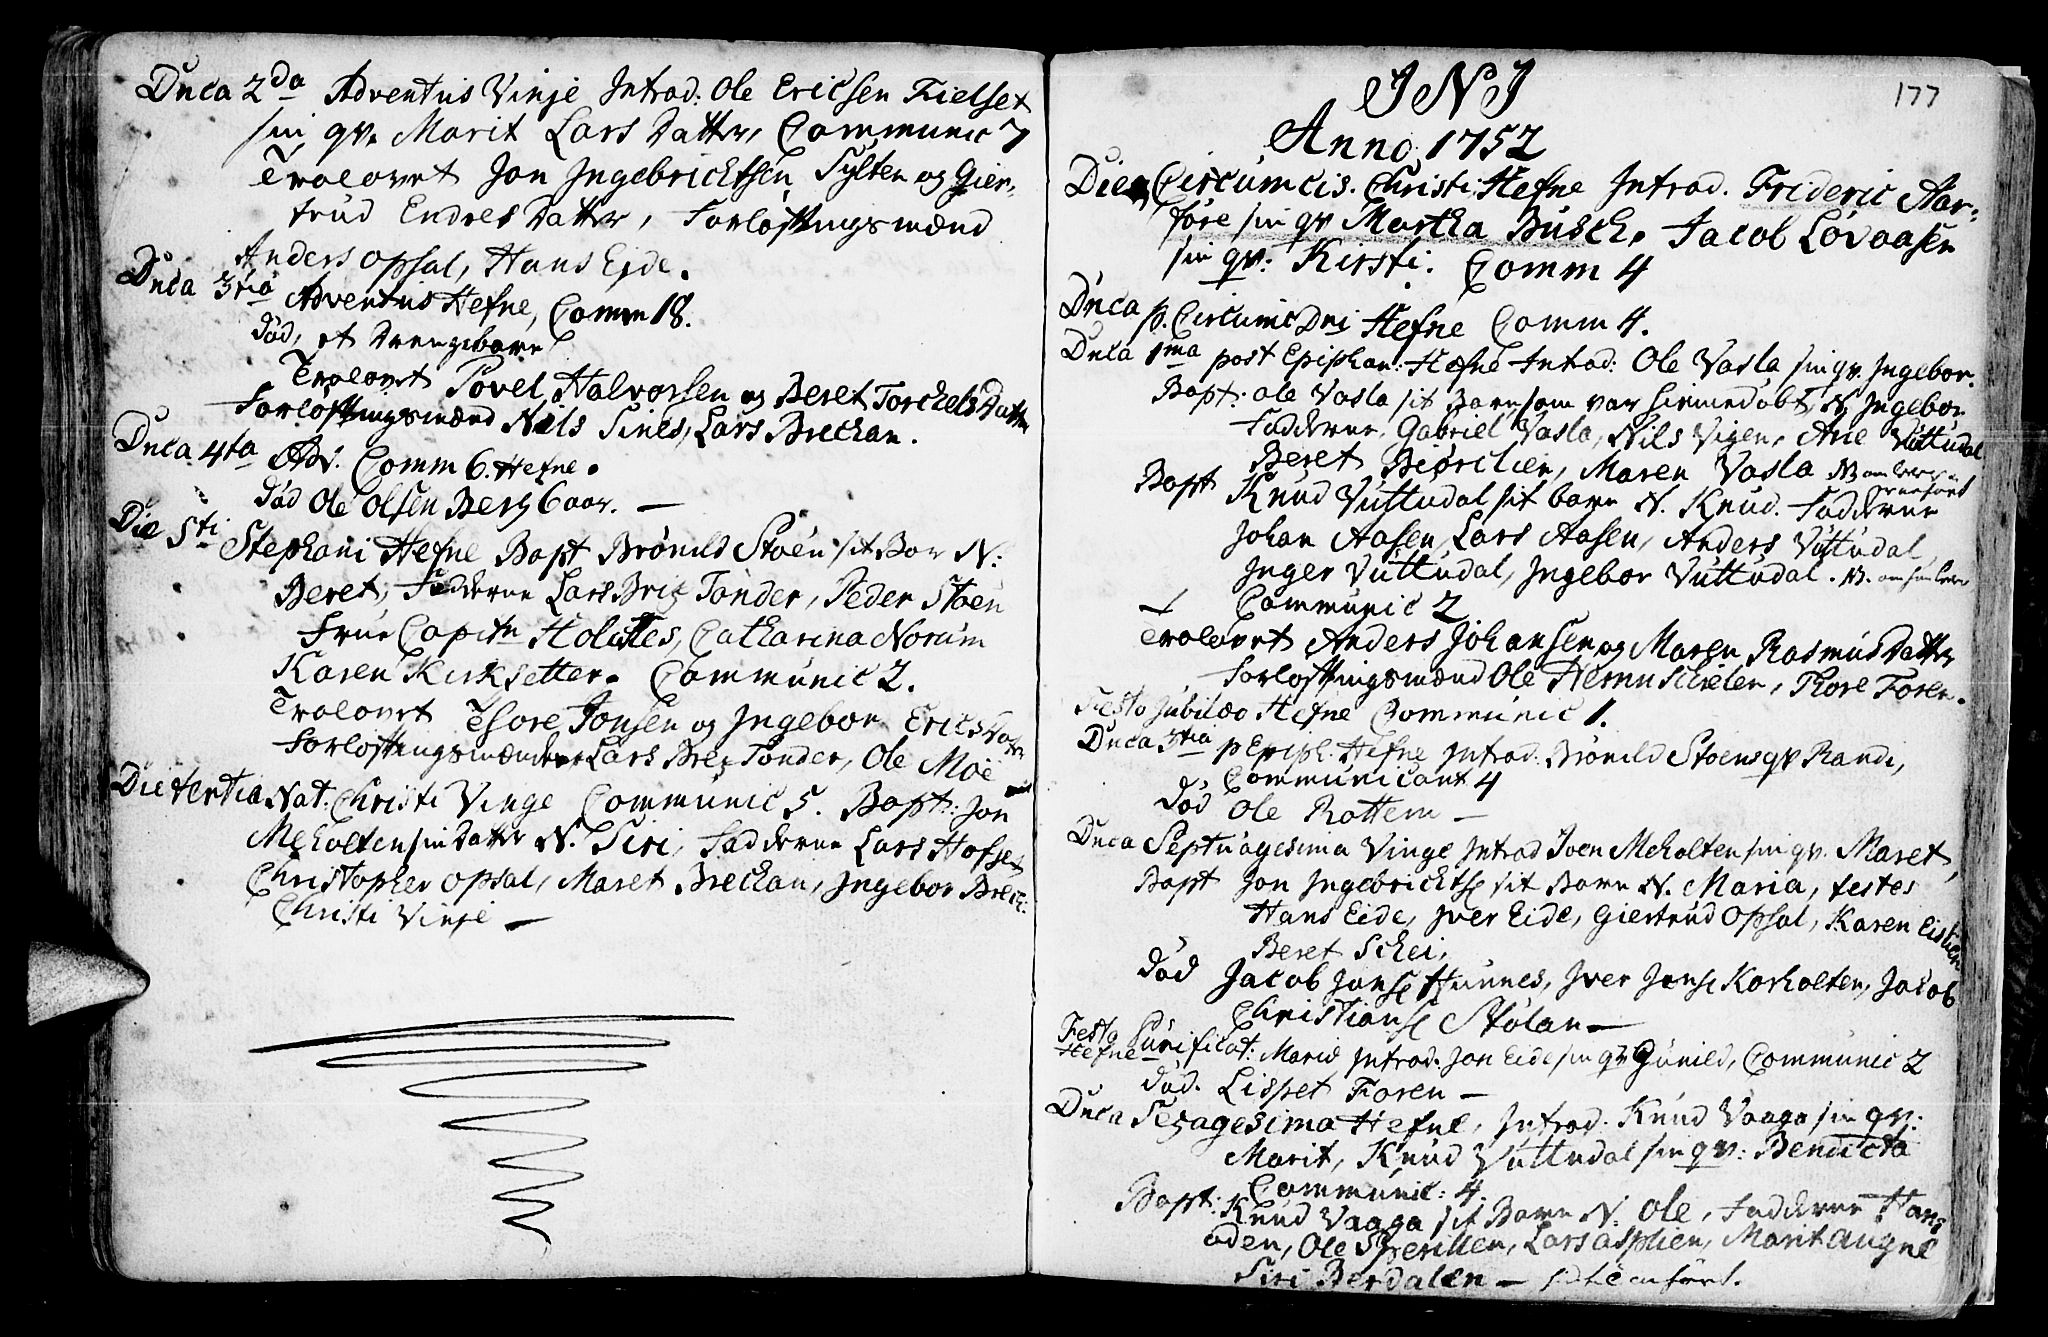 Dnca 2da Adventus Vinje Introd: Ole Ericsen Fielset
sin qv. Marit Lars Datter, Communic 7
Trolovet Jon Ingebrichtsen Sylten og Gier-
trud Endres Datter, Forløftningsmænd
Anders Opsal, Hans Eide.
Dnca 3tia Adventus Hefne, Comm 18.
død, et Drengebarn
Trolovet Povel Halvorsen og Beret Torchels Datter
Forløftningsmænd Nils Sines, Lars Brechan.
Dnca 4ta Adv. Comm 6. Hefne.
død Ole Olsen Berg 6 aar. —
Die Sti Stephani Hefne Bapt Brønild Stoen sit Bar N:
Beret, Fadderne Lars Brig Tønder, Peder Stoen
Frue Capitn Holstes, Catharina Norum
Karen Kirksetter. Communic 2.
Trolovet Thore Jonsen og Ingebor Erics Dater
Forløftningsmændene Lars Brex Tønder, Ole Moe
Die tertia Nat. Christi Vinge Communic 5. Bapt: Jon
Meholten sin Datter N. Siri, Fadderne Lars Hofset
Christopher Opsal, Maret Brechan, Ingebor Brech:
Christi Vinje —
177
INJ
Anno 1752
Die Circumcis. Christi Hefne Introd. Frideric Aar-
føre sin qv Martha Busch, Jacob Løvaasen
sin qv: Kirsti. Comm 4
Dnca p. Circumc Dni Hefne Comm 4.
Dnca 1ma post Epiphan: Hefne Introd: Ole Vasla sin qv. Ingebor.
Bapt: Ole Vasla sit Barn som var hiemedøbt, N Ingebor
Fadderne, Gabriel Vasla, Nils Vigen, Ane Vuttudal
Beret Biørilien, Maren Vasla NB
Bapt Knud Vuttudal sit barn N. Knud. Fadderne
Johan Aasen, Lars Aasen, Anders Vuttudal,
Inger Vuttudal, Ingebor Vuttudal. NB.
Communic 2
Trolovet Anders Johansen og Maren Rasmus Datter
Forløftningsmænd Ole Hemnskielen, Thore Foren.
Festo Jubilæo Hefne Communic 1.
Dnca 3tia p Epiph. Hefne Introd: Brønild Stoens qv Randi,
Communicant 4
død Ole Rottem —
Dnca Septuagesima Vinge Introd Joen Meholten sin qv. Maret,
Bapt Jon Ingebrichts sit Barn N. Maria, testes
Hans Eide, Iver Eide, Giertrud Opsal, Karen Eislien
Beret Schei,
død Jacob Jonse Hunnes, Iver Jonse Korholten, Jacob
Christianse Stølan —
Festo Purificat: Mariæ Introd. Jon Eide sin qv Gunild, Communic 2
Hefne
død. Lispet Foren —
Dnca Sexagesima Hefne, Introd. Knud Vaaga sin qv:
Marit, Knud Vuttudal sin qv: Bendicta
Communic: 4.
Bapt: Knud Vaaga sit Barn N: Ole, Fadderne Hans
Øden, Ole Sperillen, Lars Asplien, Marit Augne
Siri Berdalen —